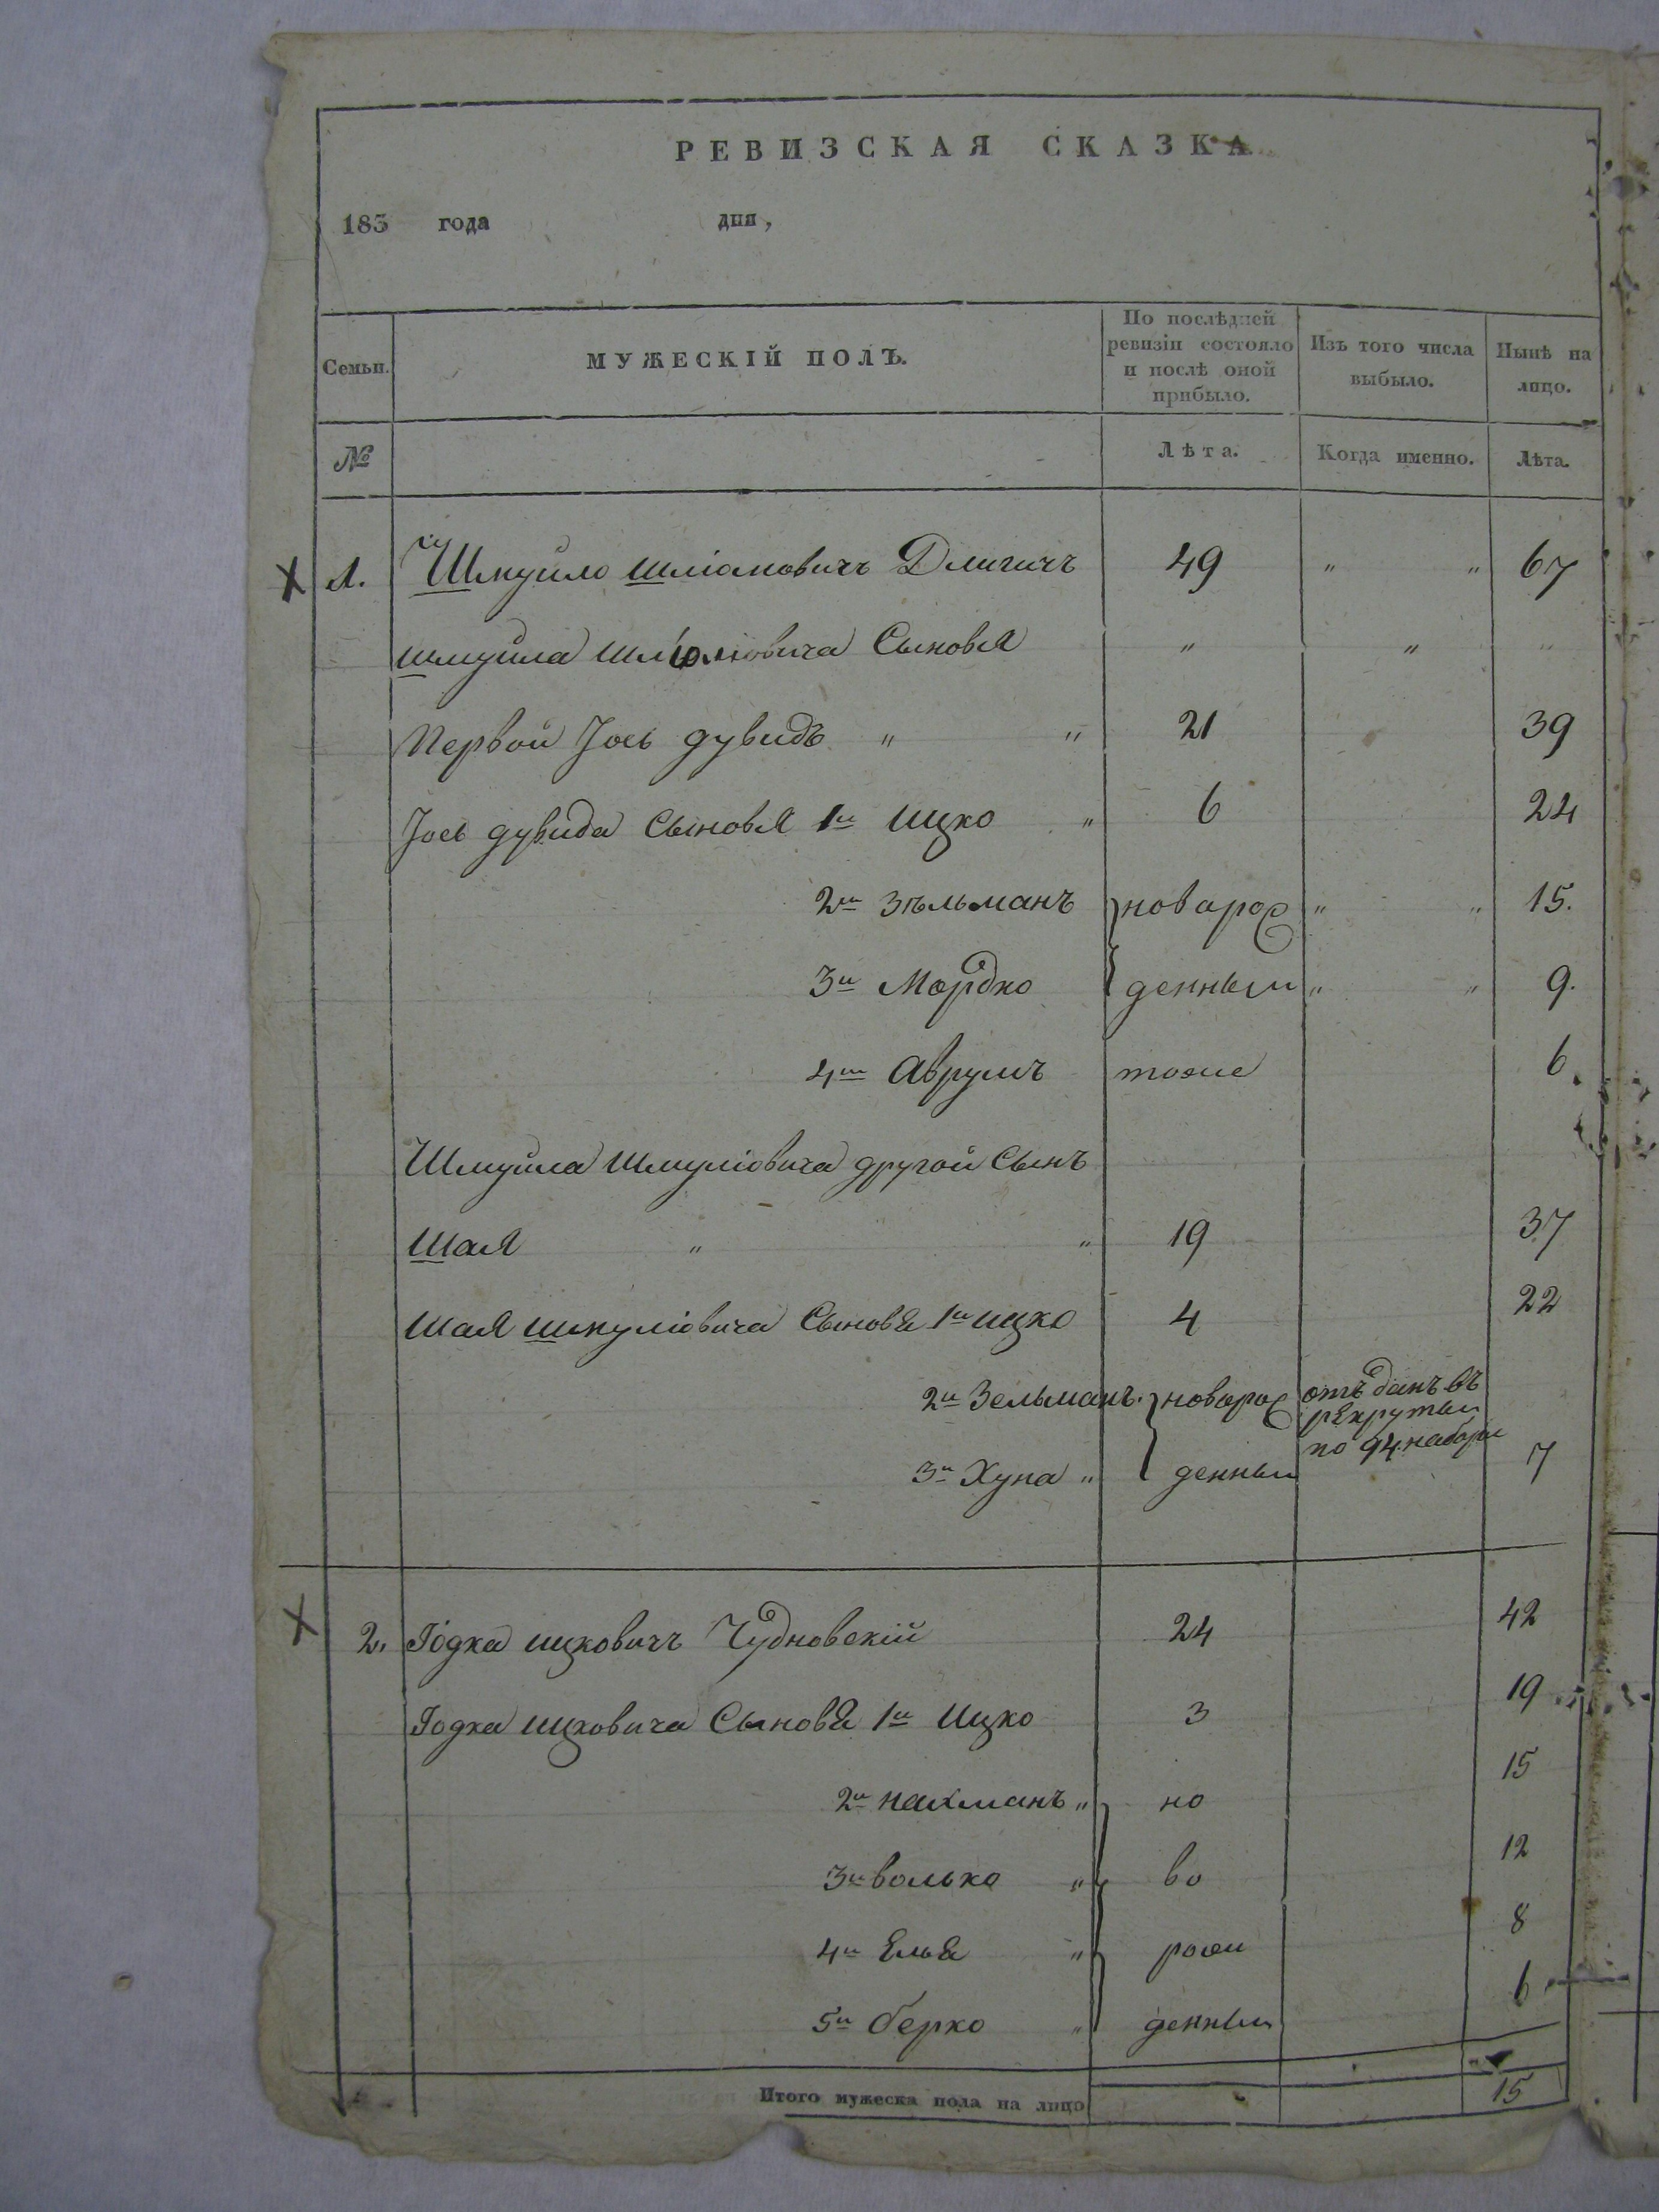 РЕВИЗСКАЯ СКАЗКА
183 года дня,
Семьи. МУЖЕСКІЙ ПОЛЪ. По послѣдней ревизіи состояло и послѣ оной прибыло. Изъ того числа выбыло. Нынѣ на лицо.
№ Лѣта. Когда именно. Лѣта.
1. Шмуйло Шліомовичъ Длигичъ 49 " " 67
Шмуйла Сыновья " " "
Первой Іось дувидъ " " 21 39
Іось дувида Сыновья 1й Ицко " 6 24
2й Зѣльманъ новорож " " 15.
3й Мордко денныи " " 9.
4й Аврумъ тоже 6.
Шмуйла Шмуліовича другой Сынъ
Шая " " 19 37
Шая Шмуліовича Сыновя 1й ицко 4 22
2й Зельманъ. новорож отъданъ въ
рекруты
по 94. набору
3й Хуна " денныи 7
2. Годка ицковичъ Чудновскій 24 42
Годка ицковича Сыновя 1й Ицко 3 19
2й нахманъ " но 15
3й волько " во 12
4й Еля " рож 8
5й берко " денныи 6
Итого мужеска пола на лицо 15